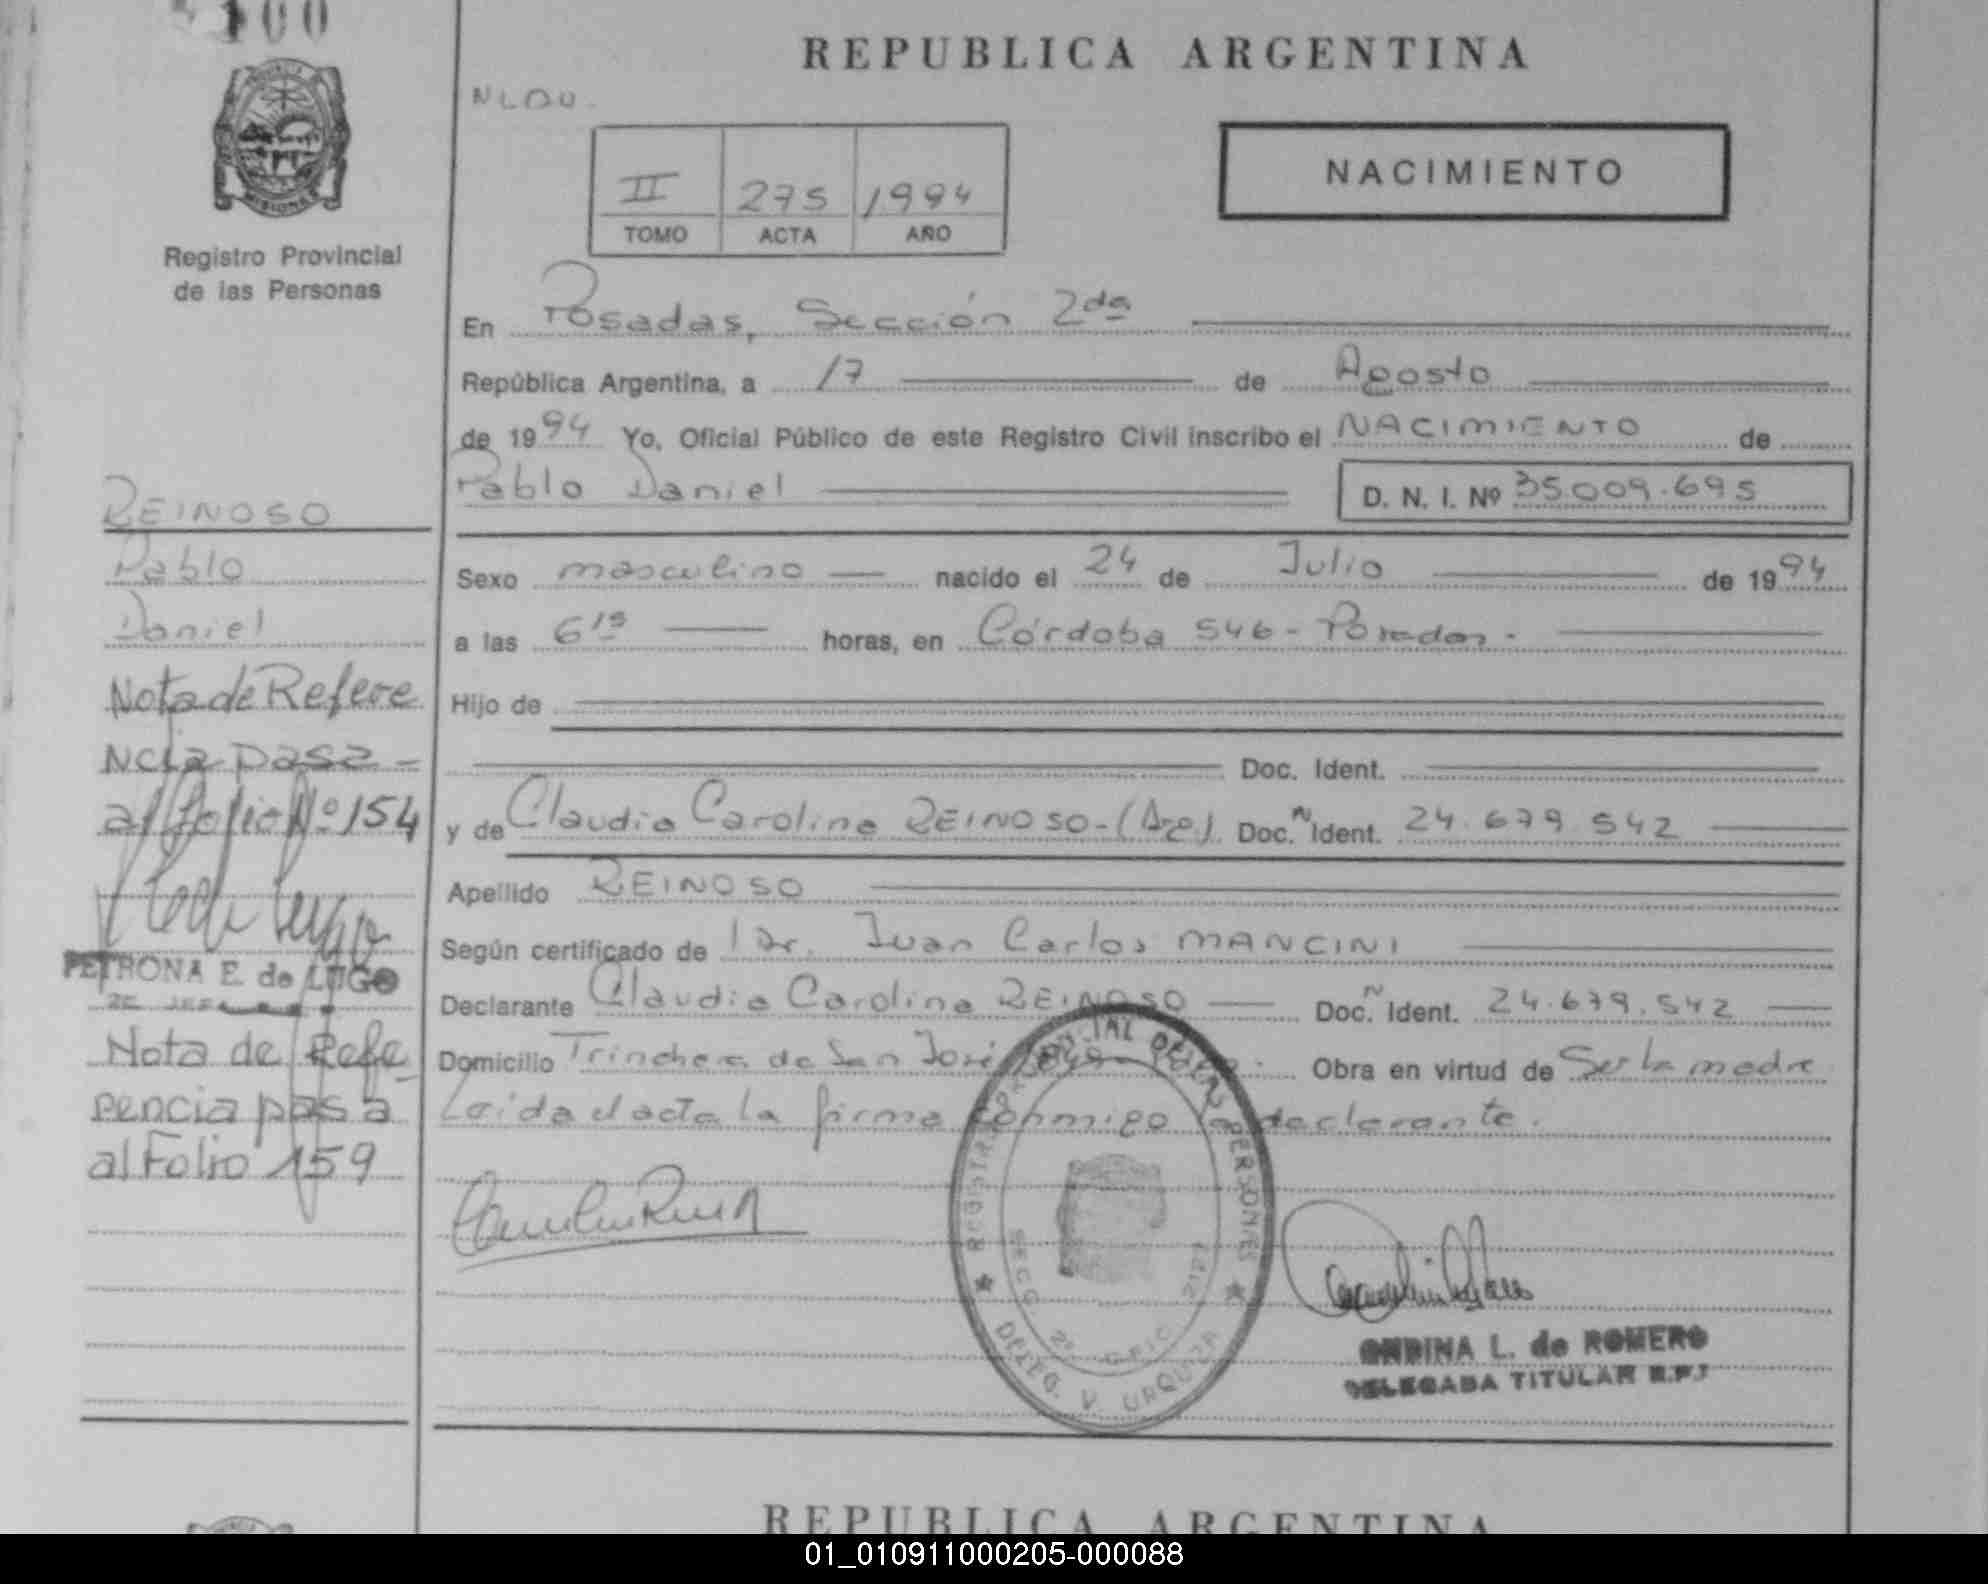 100
REPUBLICA ARGENTINA
NLDU.
NACIMIENTO
II 275 1994
TOMO ACTA AÑO
MISIONES
Registro Provincial
de las Personas
En Posadas, Sección 2da
República Argentina, a 17 de Agosto
de 1994 Yo, Oficial Público de este Registro Civil inscribo el NACIMIENTO de
Pablo Daniel D. N. I. Nº 35.009.695
Sexo masculino nacido el 24 de Julio de 1994
a las 6 15 horas, en Córdoba 546 - Posadas.
Hijo de
Doc. Ident.
y de Claudia Carolina REINOSO - (Arg) Doc. N Ident. 24.679.542
Apellido REINOSO
Según certificado de Dr. Juan Carlos MANCINI
Declarante Claudia Carolina REINOSO Doc. N Ident. 24.679.542
Domicilio Trinchera de San José Obra en virtud de Ser la madre
Leída el acta la firma conmigo la declarante.
REINOSO
Pablo
Daniel
Nota de Refere
ncia pasa -
al folio Nº 154
PETRONA E. de LUGO
Nota de Refe
rencia pasa
al Folio 159
REGISTRO PROVINCIAL DE LAS PERSONAS
SECC. 2º OFIC.
DELEG. V. URQUIZA
ONDINA L. de ROMERO
DELEGADA TITULAR R.P.
REPUBLICA ARGENTINA
01_010911000205-000088